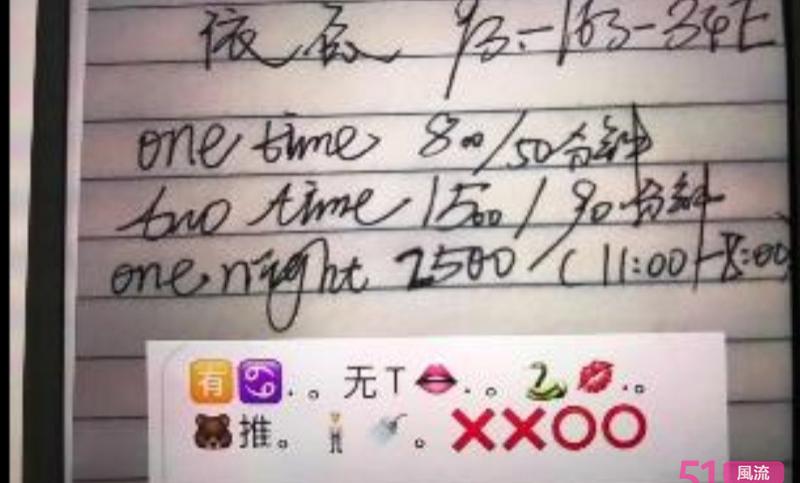 依 93-163-34E
one time 800/50分钟
two time 1500/90分钟
one night 2500/(11:00-8:00
🈶♋.。无T👄.。🐍💋.。
🐻推。🧍🚿。❌❌⭕⭕
51風流